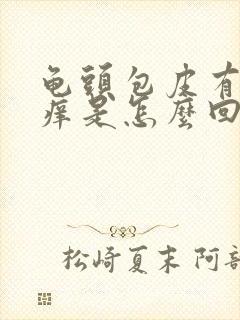 龟頭包皮有
痒是怎麼回
松崎夏末 阿部